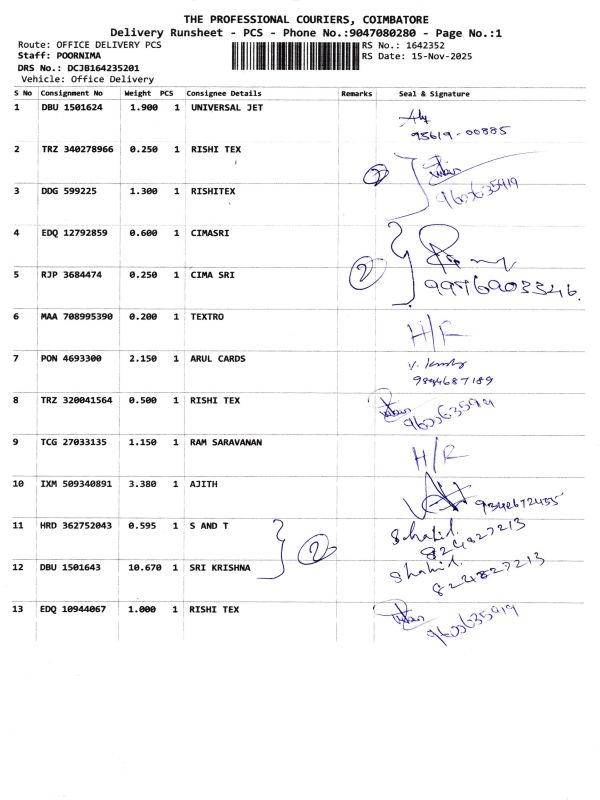 THE PROFESSIONAL COURIERS, COIMBATORE
Delivery Runsheet - PCS - Phone No.:9047080280 - Page No.:1
Route: OFFICE DELIVERY PCS RS No.: 1642352
Staff: POORNIMA RS Date: 15-Nov-2025
DRS No.: DCJB164235201
Vehicle: Office Delivery
S No Consignment No Weight PCS Consignee Details Remarks Seal & Signature
1 DBU 1501624 1.900 1 UNIVERSAL JET
95619-00885
2 TRZ 340278966 0.250 1 RISHI TEX
2
3 DDG 599225 1.300 1 RISHITEX
9605635919
4 EDQ 12792859 0.600 1 CIMASRI
5 RJP 3684474 0.250 1 CIMA SRI
2 9976903346.
6 MAA 708995390 0.200 1 TEXTRO
H/R
7 PON 4693300 2.150 1 ARUL CARDS
9894687189
8 TRZ 320041564 0.500 1 RISHI TEX
9 TCG 27033135 1.150 1 RAM SARAVANAN
H/R
10 IXM 509340891 3.380 1 AJITH
9342672455
11 HRD 362752043 0.595 1 S AND T Shahid.
2 8224827213
12 DBU 1501643 10.670 1 SRI KRISHNA Shahid.
8224827213
13 EDQ 10944067 1.000 1 RISHI TEX
9605635919